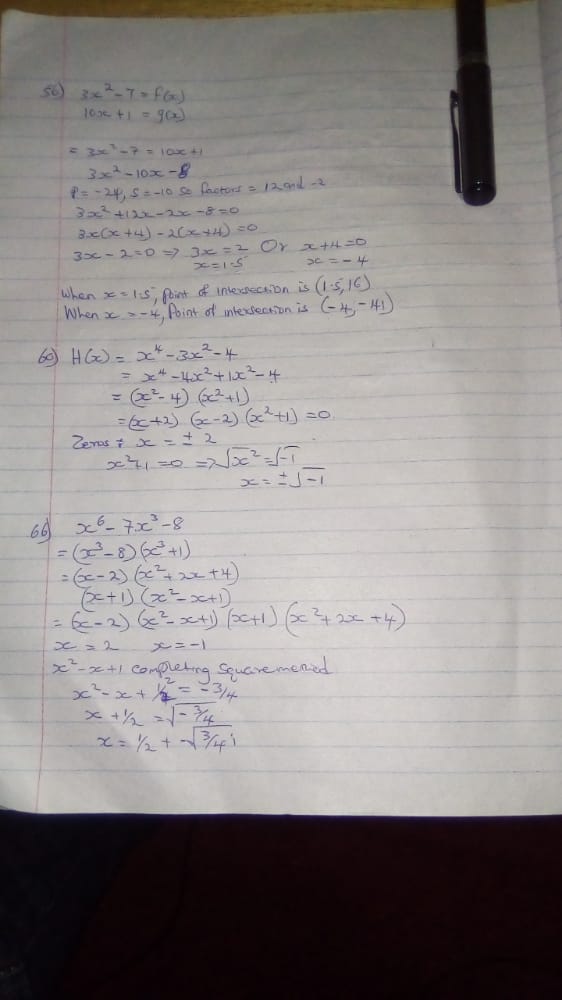 56) 3x² - 7 = f(x)
10x + 1 = g(x)
= 3x² - 7 = 10x + 1
3x² - 10x - 8
P = -24, S = -10 so factors = 12 and -2
3x² + 12x - 2x - 8 = 0
3x(x + 4) - 2(x + 4) = 0
3x - 2 = 0 => 3x = 2 Or x + 4 = 0
x = 1.5 x = -4
When x = 1.5, Point of intersection is (1.5, 16)
When x = -4, Point of intersection is (-4, -41)
60) H(x) = x⁴ - 3x² - 4
= x⁴ - 4x² + 1x² - 4
= (x² - 4) (x² + 1)
= (x + 2) (x - 2) (x² + 1) = 0
Zeros : x = ± 2
x² + 1 = 0 => √x² = √-1
x = ±√-1
66) x⁶ - 7x³ - 8
= (x³ - 8) (x³ + 1)
= (x - 2) (x² + 2x + 4)
(x + 1) (x² - x + 1)
= (x - 2) (x² - x + 1) (x + 1) (x² + 2x + 4)
x = 2 x = -1
x² - x + 1 completing square
x² - x + 1/2² = -3/4
x + 1/2 = √-3/4
x = 1/2 + -√3/4 i